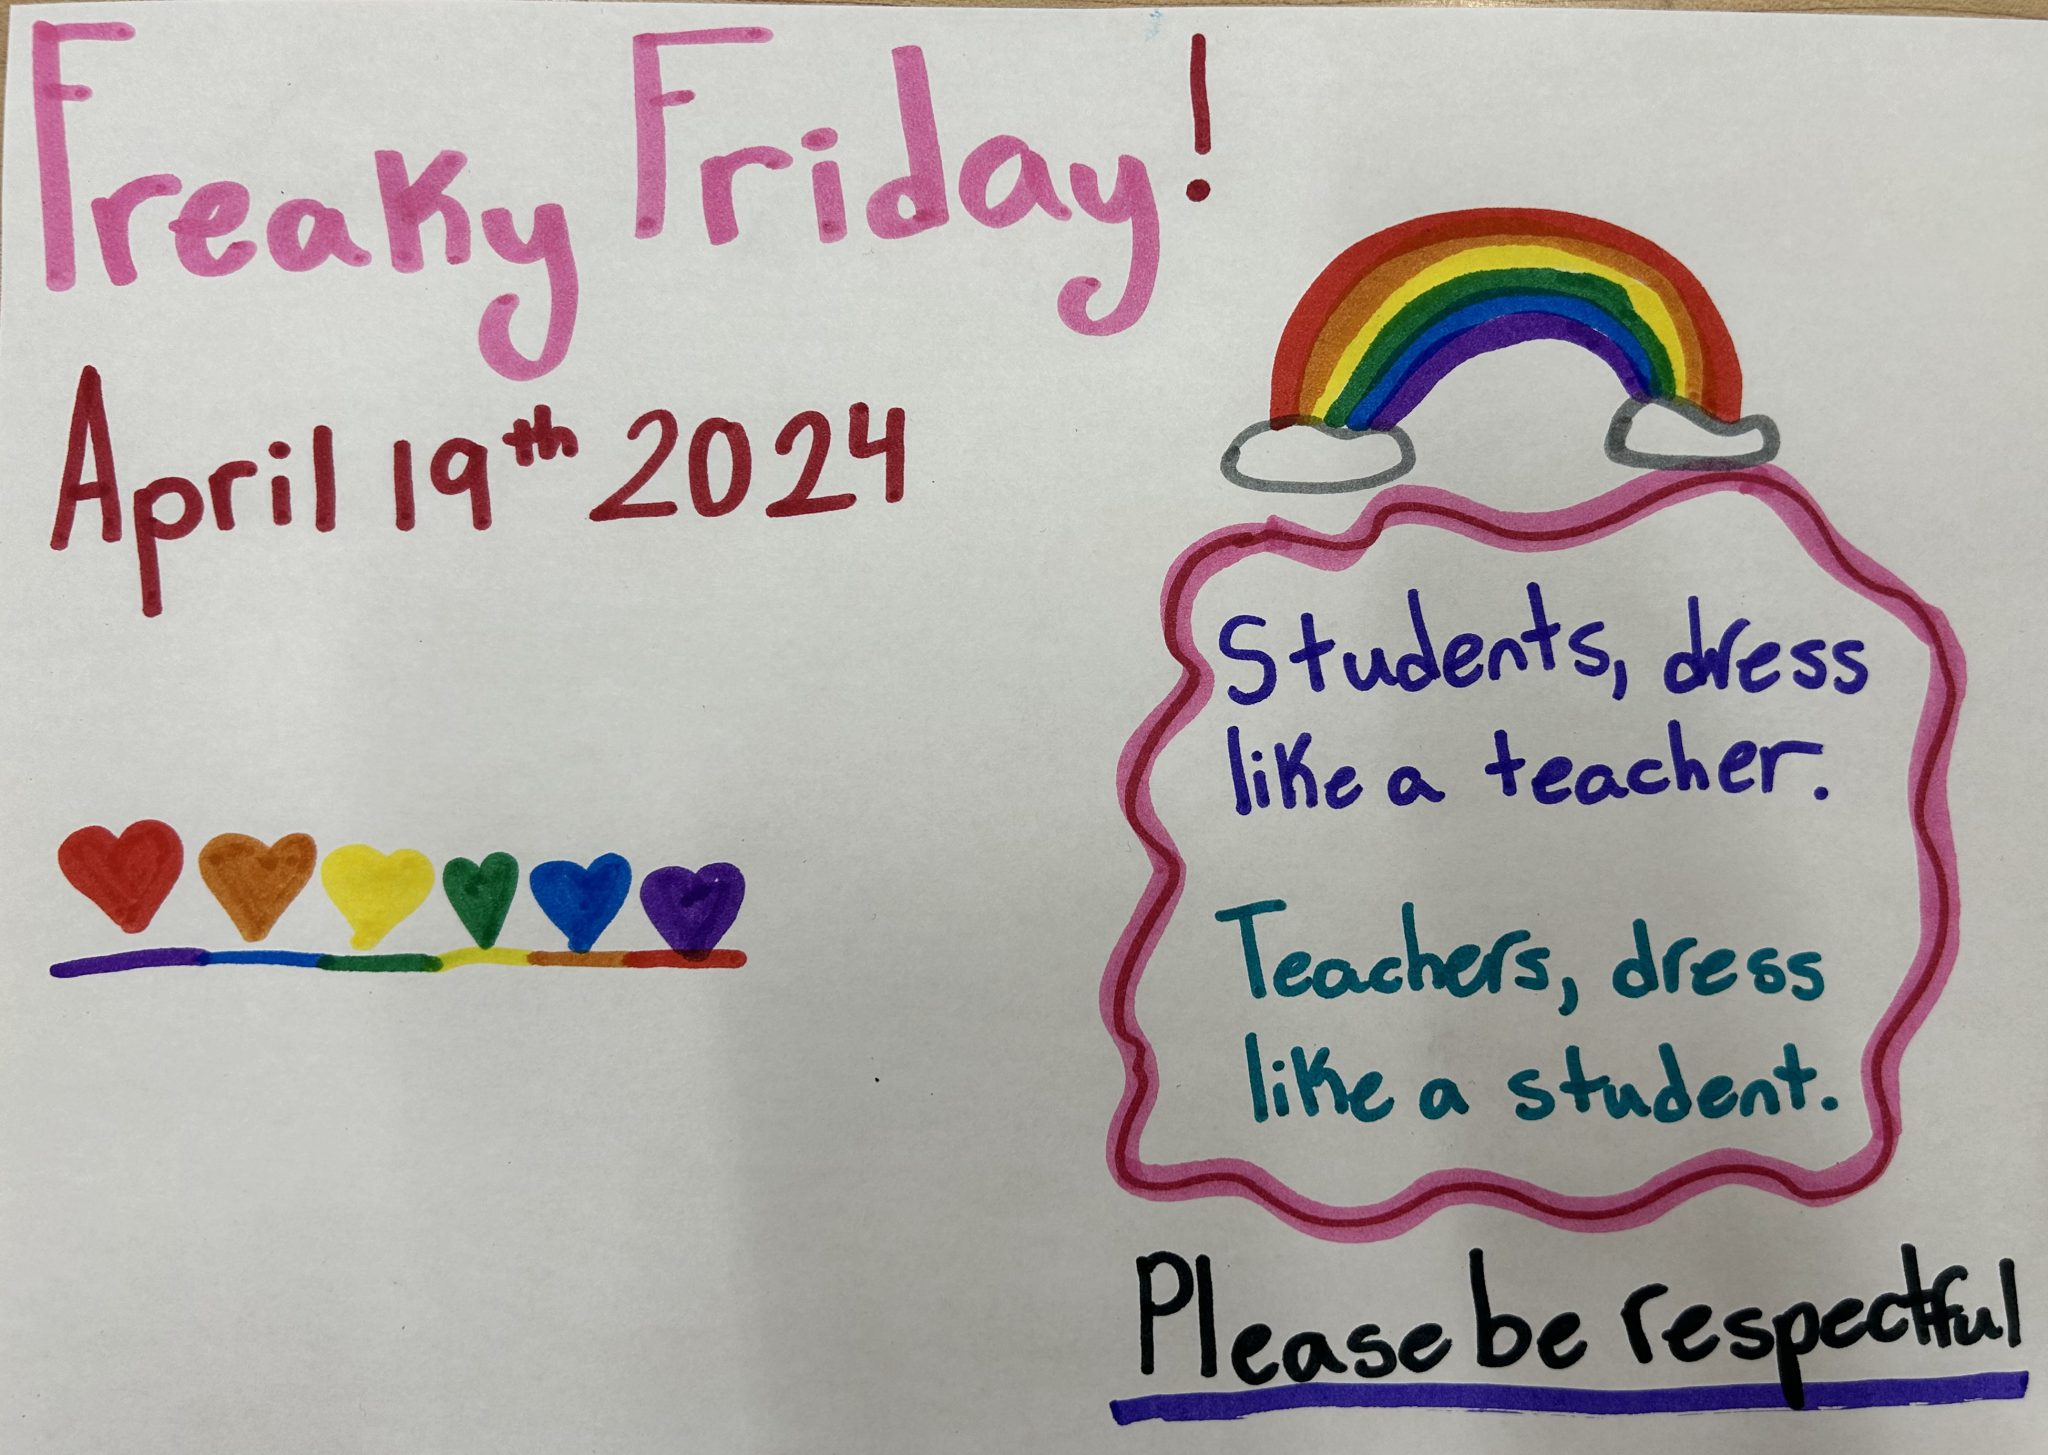 Freaky Friday!
April 19th 2024
Students, dress
like a teacher.
Teachers, dress
like a student.
Please be respectful